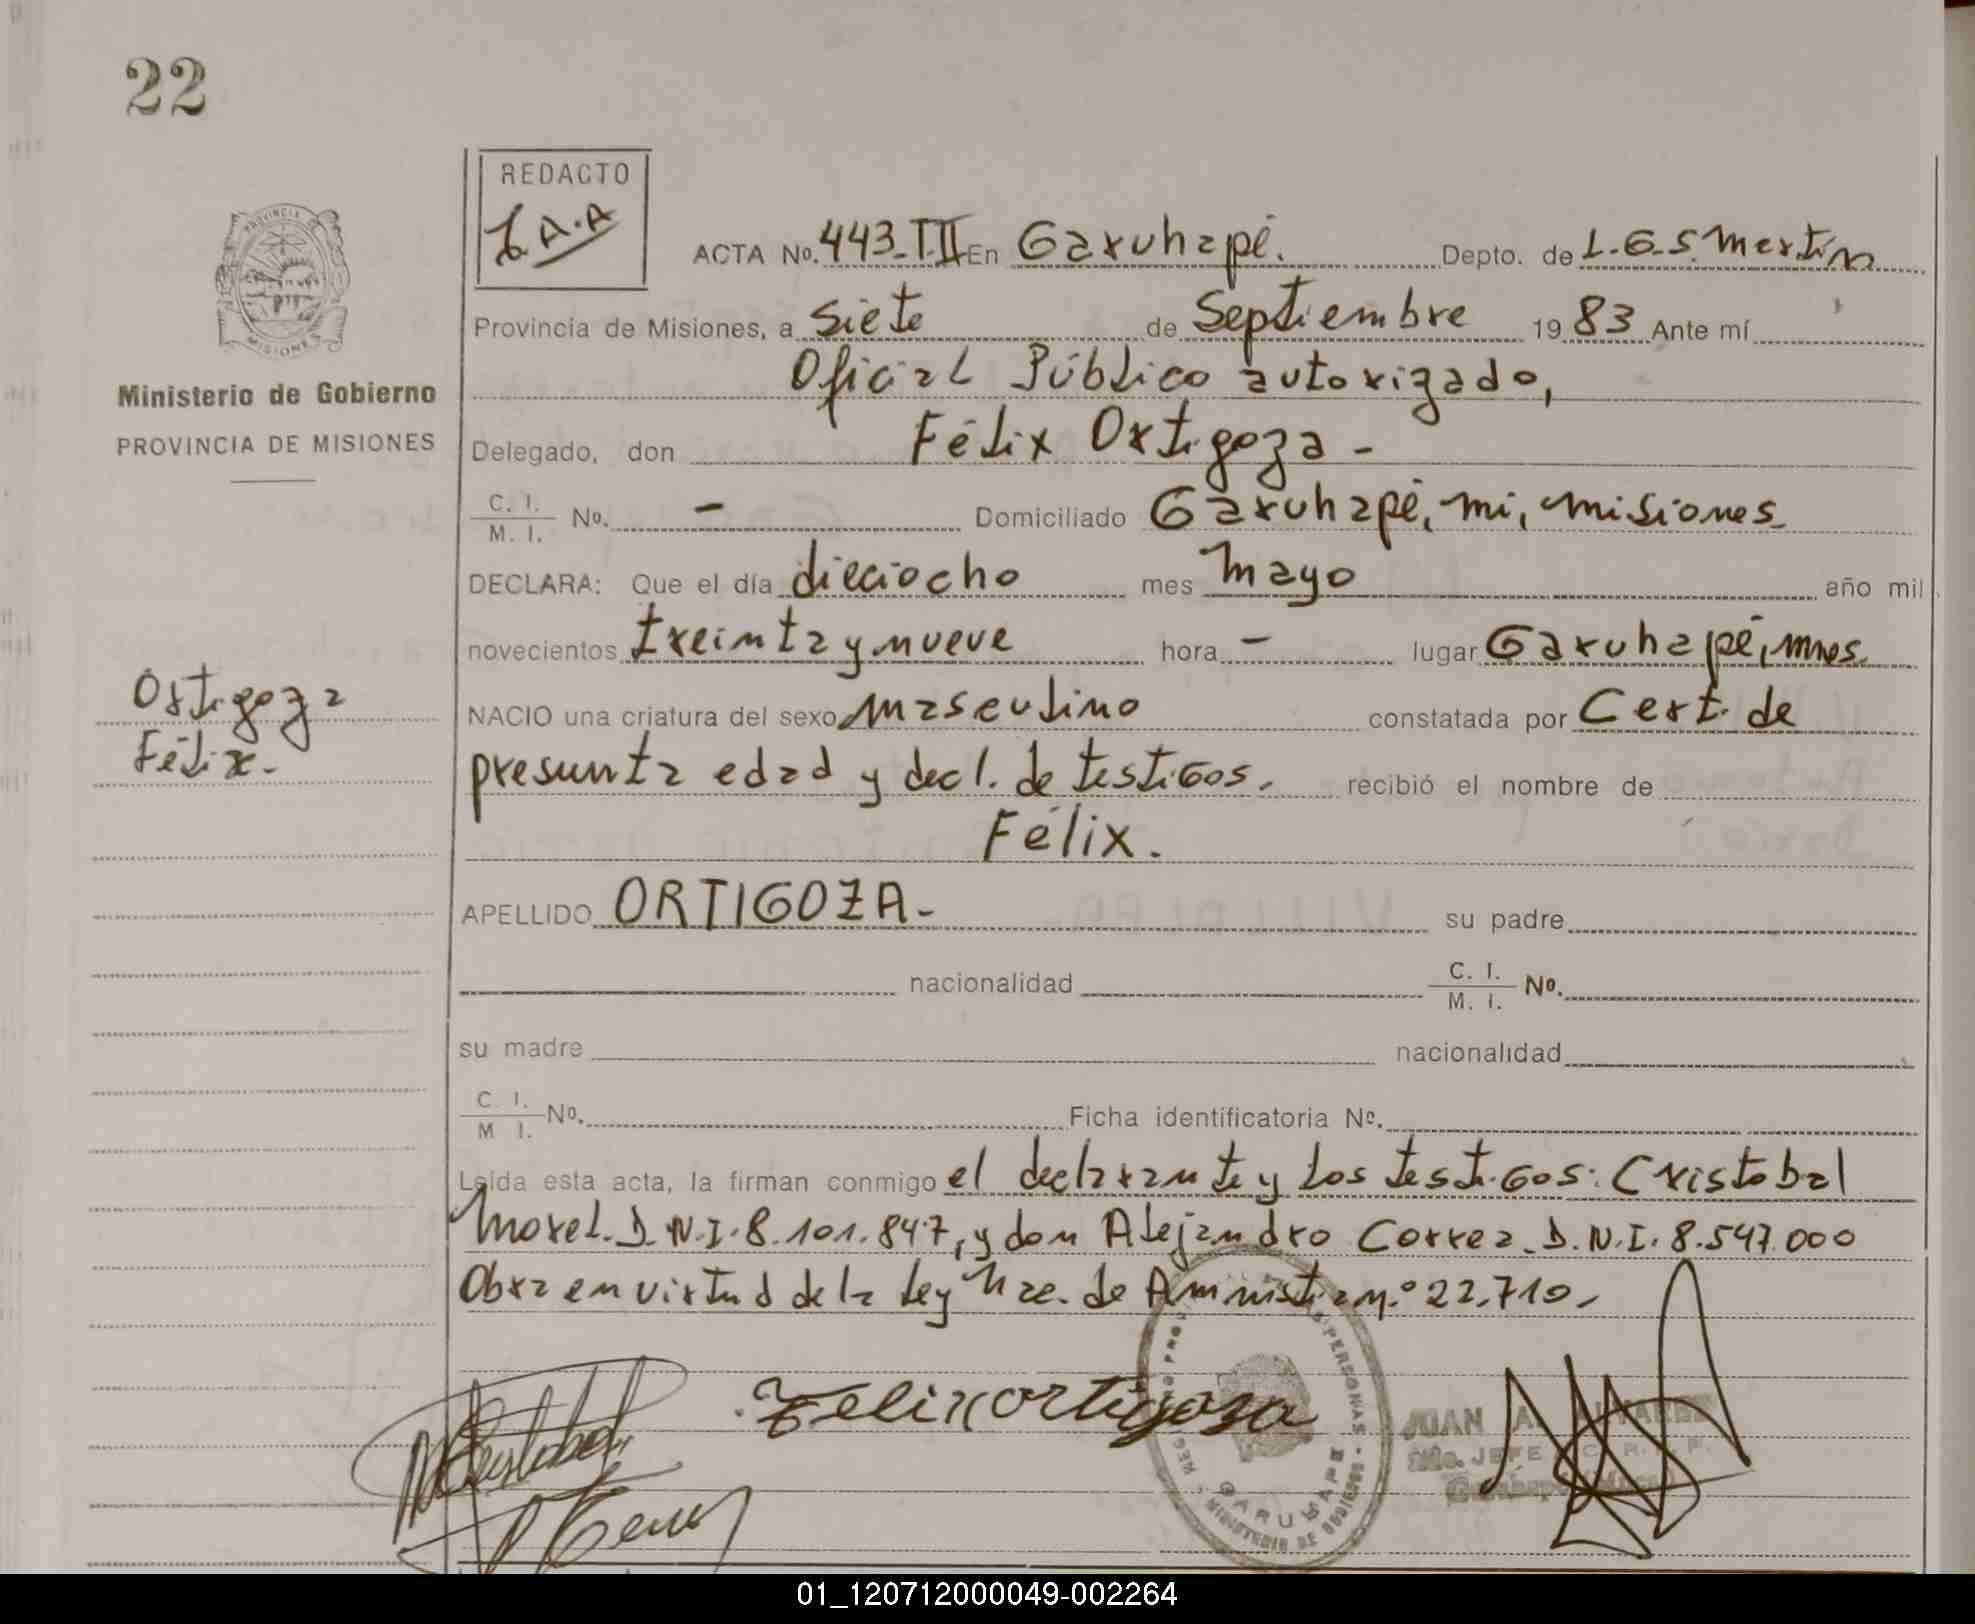 22
REDACTO
A.A
PROVINCIA
MISIONES
ACTA No. 443-T.II En Garuhapé. Depto. de L.G.S. Martín
Provincia de Misiones, a siete de Septiembre 19 83 Ante mí
Oficial Público autorizado,
Ministerio de Gobierno
PROVINCIA DE MISIONES
Delegado, don Félix Ortigoza -
C. I. / M. I. No. - Domiciliado Garuhapé, mi, misiones
DECLARA: Que el día dieciocho mes mayo año mil
novecientos treinta y nueve hora - lugar Garuhapé, mnes.
Ortigoza
Félix.-
NACIO una criatura del sexo masculino constatada por Cert. de
presunta edad y decl. de testigos. recibió el nombre de
Félix.
APELLIDO ORTIGOZA- su padre
nacionalidad C. I. / M. I. No.
su madre nacionalidad
C. I. / M I. No. Ficha identificatoria Nº.
Leída esta acta, la firman conmigo el declarante y los testigos: Cristobal
Morel. D.N.I. 8.101.847, y don Alejandro Correa. D.N.I. 8.547.000
Obra en virtud de la ley Nac. de Amnistia n.° 22.710.-
Felix ortigoza
PERSONAS
GARUHAPE
MINISTERIO DE GOBIERNO
JUAN A.
JEFE
01_120712000049-002264